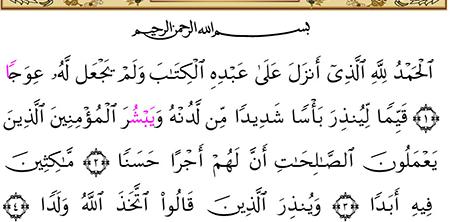 بسم الله الرحمن الرحيم
ٱلۡحَمۡدُ لِلَّهِ ٱلَّذِيٓ أَنزَلَ عَلَىٰ عَبۡدِهِ ٱلۡكِتَٰبَ وَلَمۡ تَجۡعَل لَّهُۥ عِوَجَاۜ
﴿١﴾ قَيِّمٗا لِّيُنذِرَ بَأۡسٗا شَدِيدٗا مِّن لَّدُنۡهُ وَيَبۡشُرَ ٱلۡمُؤۡمِنِينَ ٱلَّذِينَ
يَعۡمَلُونَ ٱلصَّٰلِحَٰتِ أَنَّ لَهُمۡ أَجۡرًا حَسَنٗا ﴿٢﴾ مَّٰكِثِينَ
فِيهِ أَبَدٗا ﴿٣﴾ وَيُنذِرَ ٱلَّذِينَ قَالُواْ ٱتَّخَذَ ٱللَّهُ وَلَدٗا ﴿٤﴾